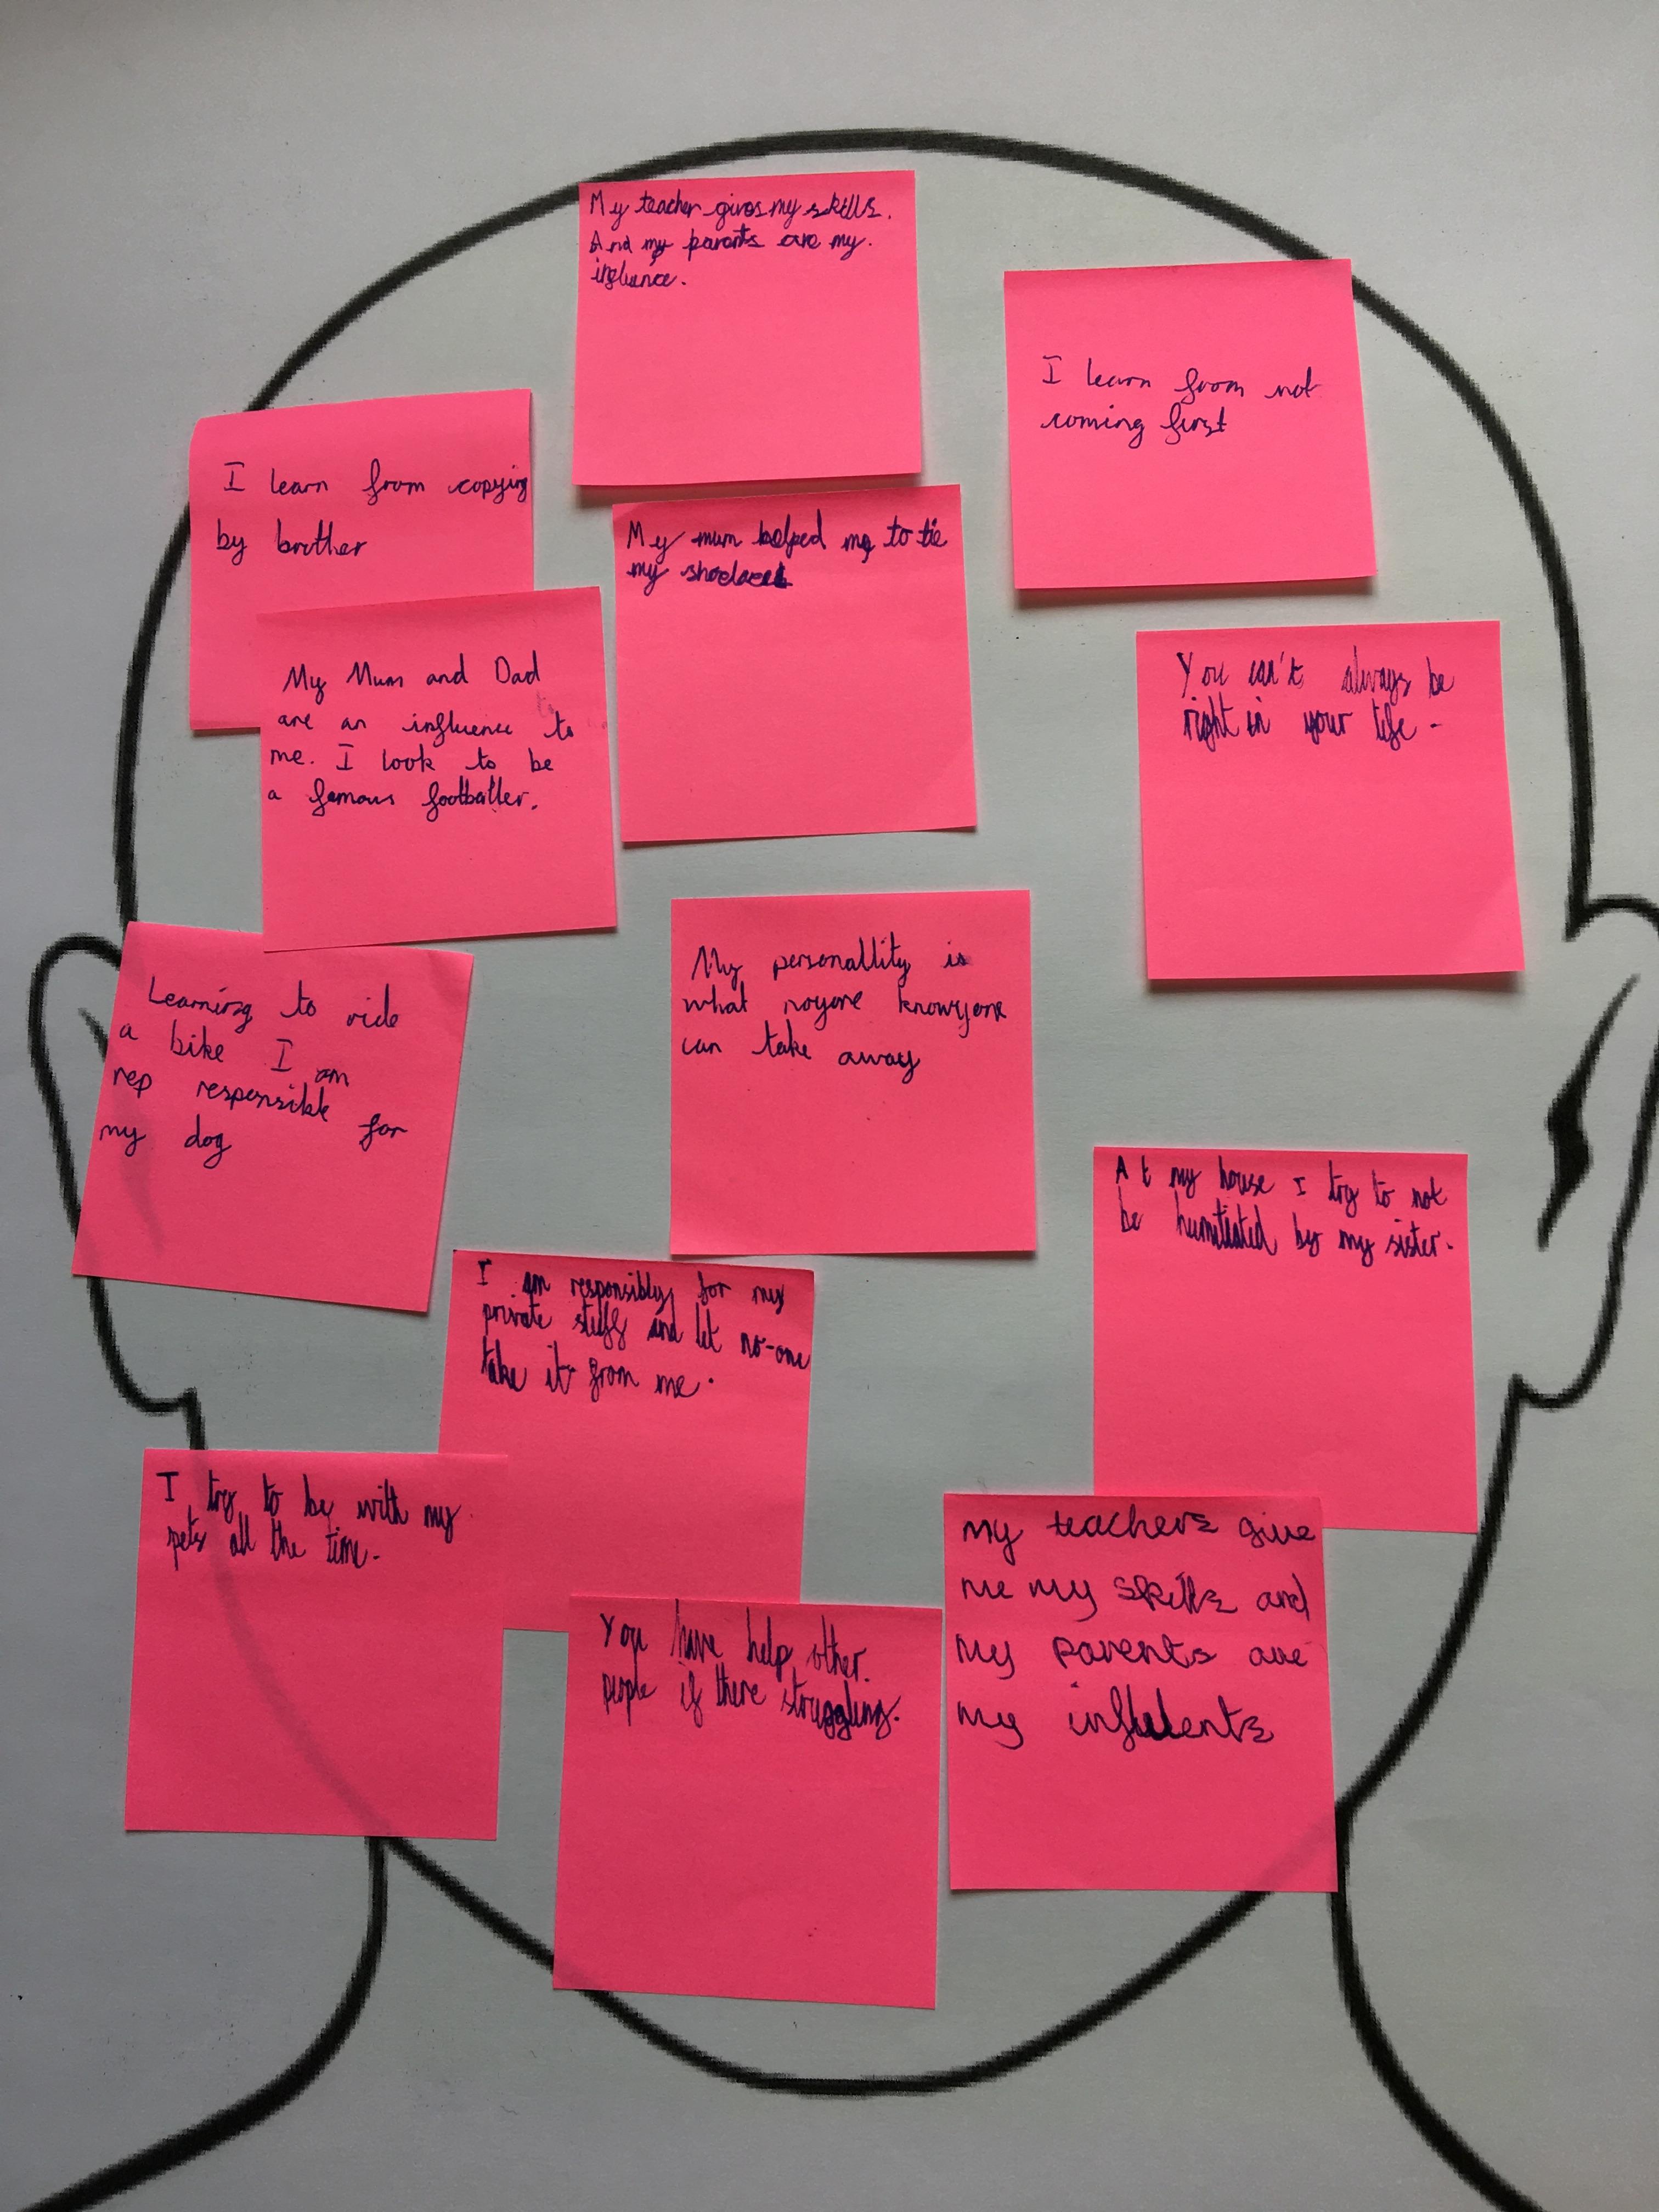 My teacher gives my skills.
And my parents are my.
influnce.
I learn from not
coming first
I learn from copying
by brother
My mum helped me to tie
my shoelaces
My Mum and Dad
are an influence to
me. I look to be
a famous footballer.
You can't always be
right in your life.
My personallity is
what noyone knowyone
can take away
Learning to ride
a bike I am
rep responsible for
my dog
At my house I try to not
be humiliated by my sister.
I am responsibly for my
private stuff and let no-one
take it from me.
I try to be with my
pets all the time.
my teachers give
me my skills and
my parents are
my influents
You have help other.
people if there struggling.